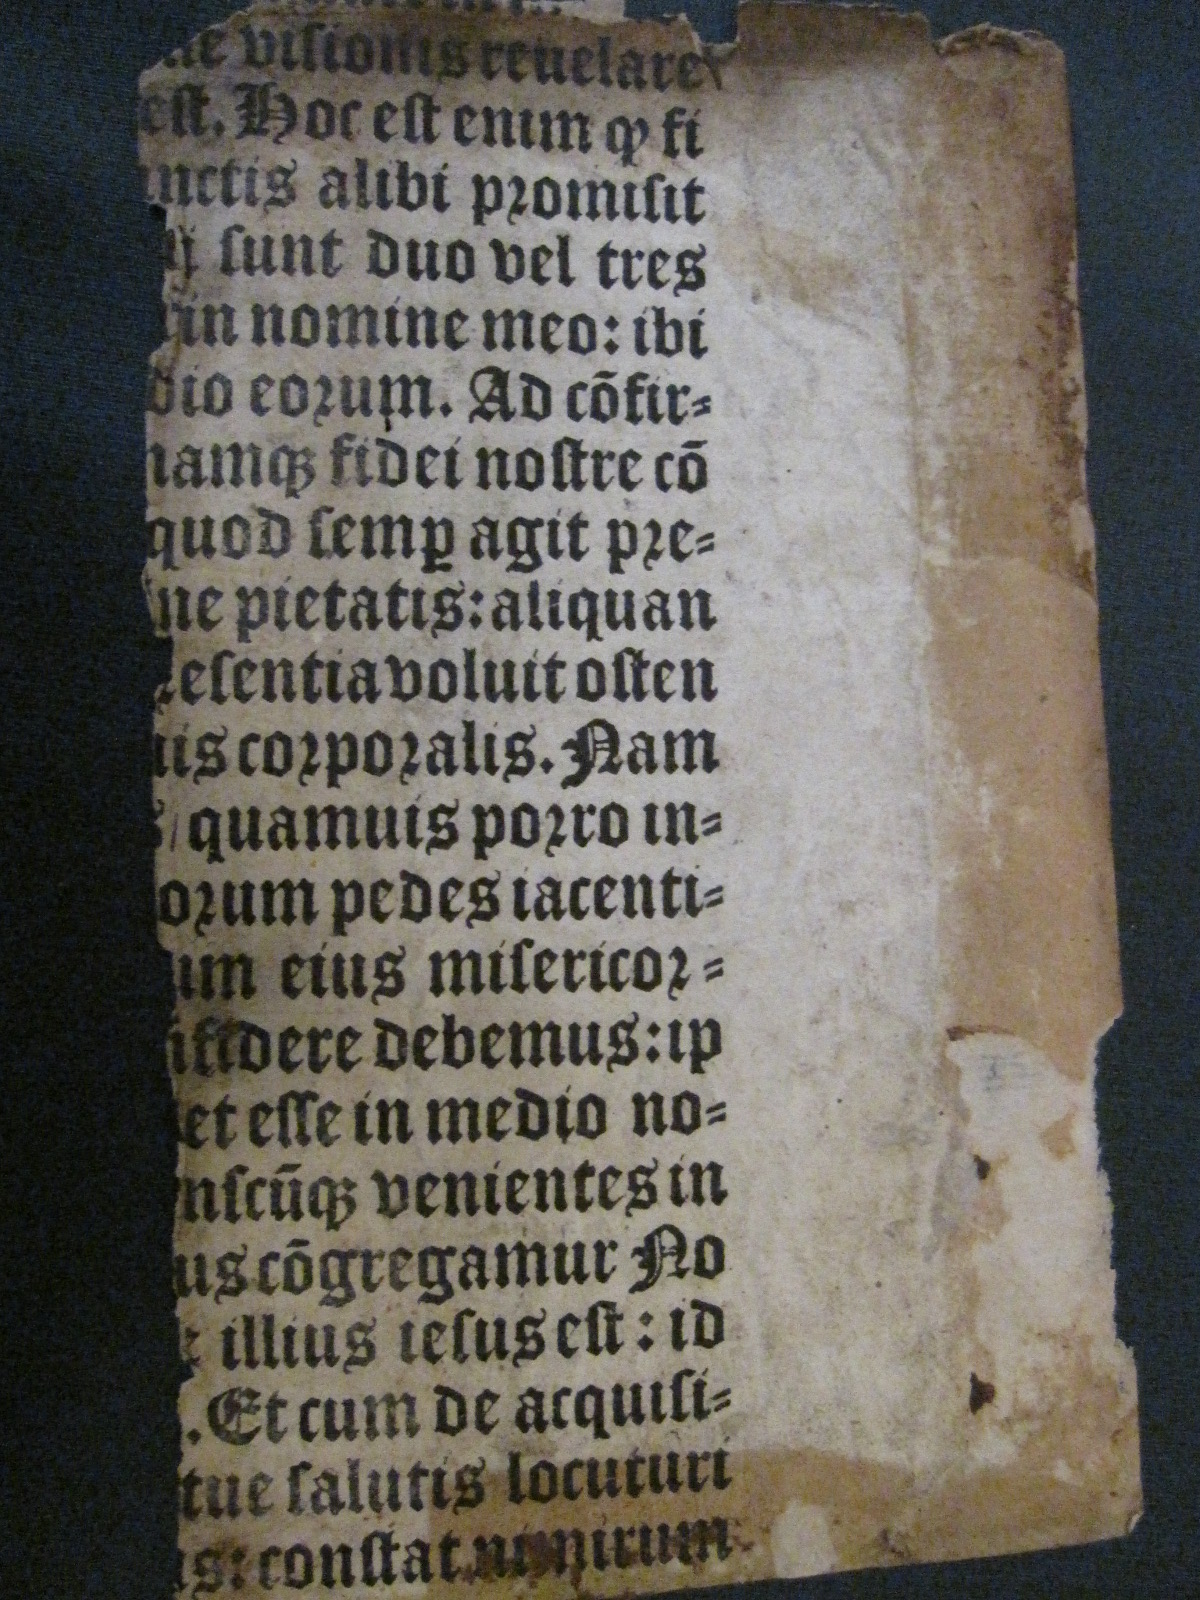 ne visionis reuelare
est. Hoc est enim ꝙ fi
nctis alibi promisit
sunt duo vel tres
in nomine meo: ibi
dio eorum. Ad cōfir⸗
namqꝫ fidei nostre cō
quod semꝑ agit pre⸗
ne pietatis: aliquan
resentia voluit osten
uis corporalis. Nam
s/ quamuis porro in⸗
orum pedes iacenti⸗
um eius misericor⸗
fidere debemus: ip
et esse in medio no⸗
nscūqꝫ venientes in
us cōgregamur No
illius iesus est: id
. Et cum de acquisi⸗
tue salutis locuturi
s: constat nimirum